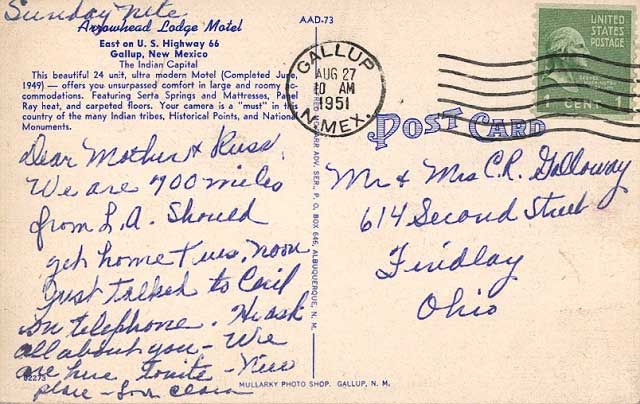 Sunday nite
Arrowhead Lodge Motel
East on U. S. Highway 66
Gallup, New Mexico
The Indian Capital
This beautiful 24 unit, ultra modern Motel (Completed June,
1949) — offers you unsurpassed comfort in large and roomy ac-
commodations. Featuring Serta Springs and Mattresses, Panel
Ray heat, and carpeted floors. Your camera is a "must" in this
country of the many Indian tribes, Historical Points, and National
Monuments.
Dear Mother & Russ.
We are 700 miles
from L.A. Should
get home Tues. noon
Just talked to Cecil
on telephone. He ask
all about you - We
are here tonite - Nice
place - Love Clara
82273
AAD-73
ARR ADV. SER., P. O. BOX 646, ALBUQUERQUE, N. M.
MULLARKY PHOTO SHOP. GALLUP, N. M.
GALLUP
AUG 27
10 AM
1951
N. MEX.
UNITED
STATES
POSTAGE
1 CENT 1
POST CARD
Mr & Mrs C.R. Galloway
614 Second Street
Findlay
Ohio